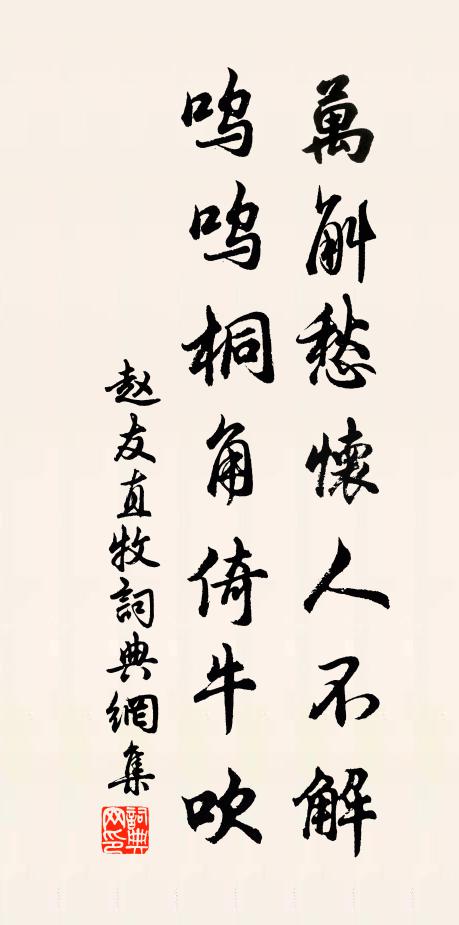 萬斛愁懷人不解
嗚嗚桐角倚牛吹
赵友直牧詞典網集
詞典网印